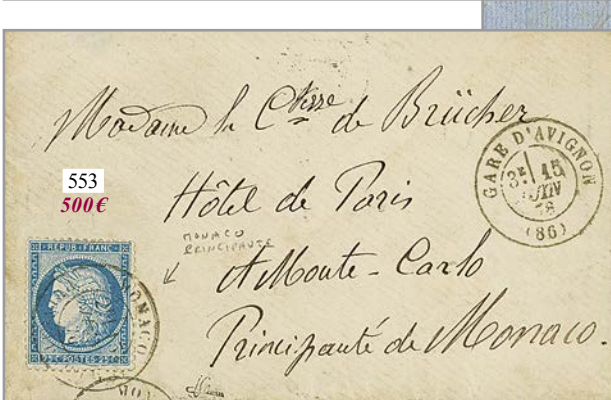 Madame la Ctesse de Brücher
553
500€
Hôtel de Paris
MONACO
PRINCIPAUTÉ
A Monte-Carlo
Principauté de Monaco.
GARE D'AVIGNON
3E 15
JUIN
78
(86)
REPUB·FRANC·
25 C POSTES 25 C
MONACO
MON